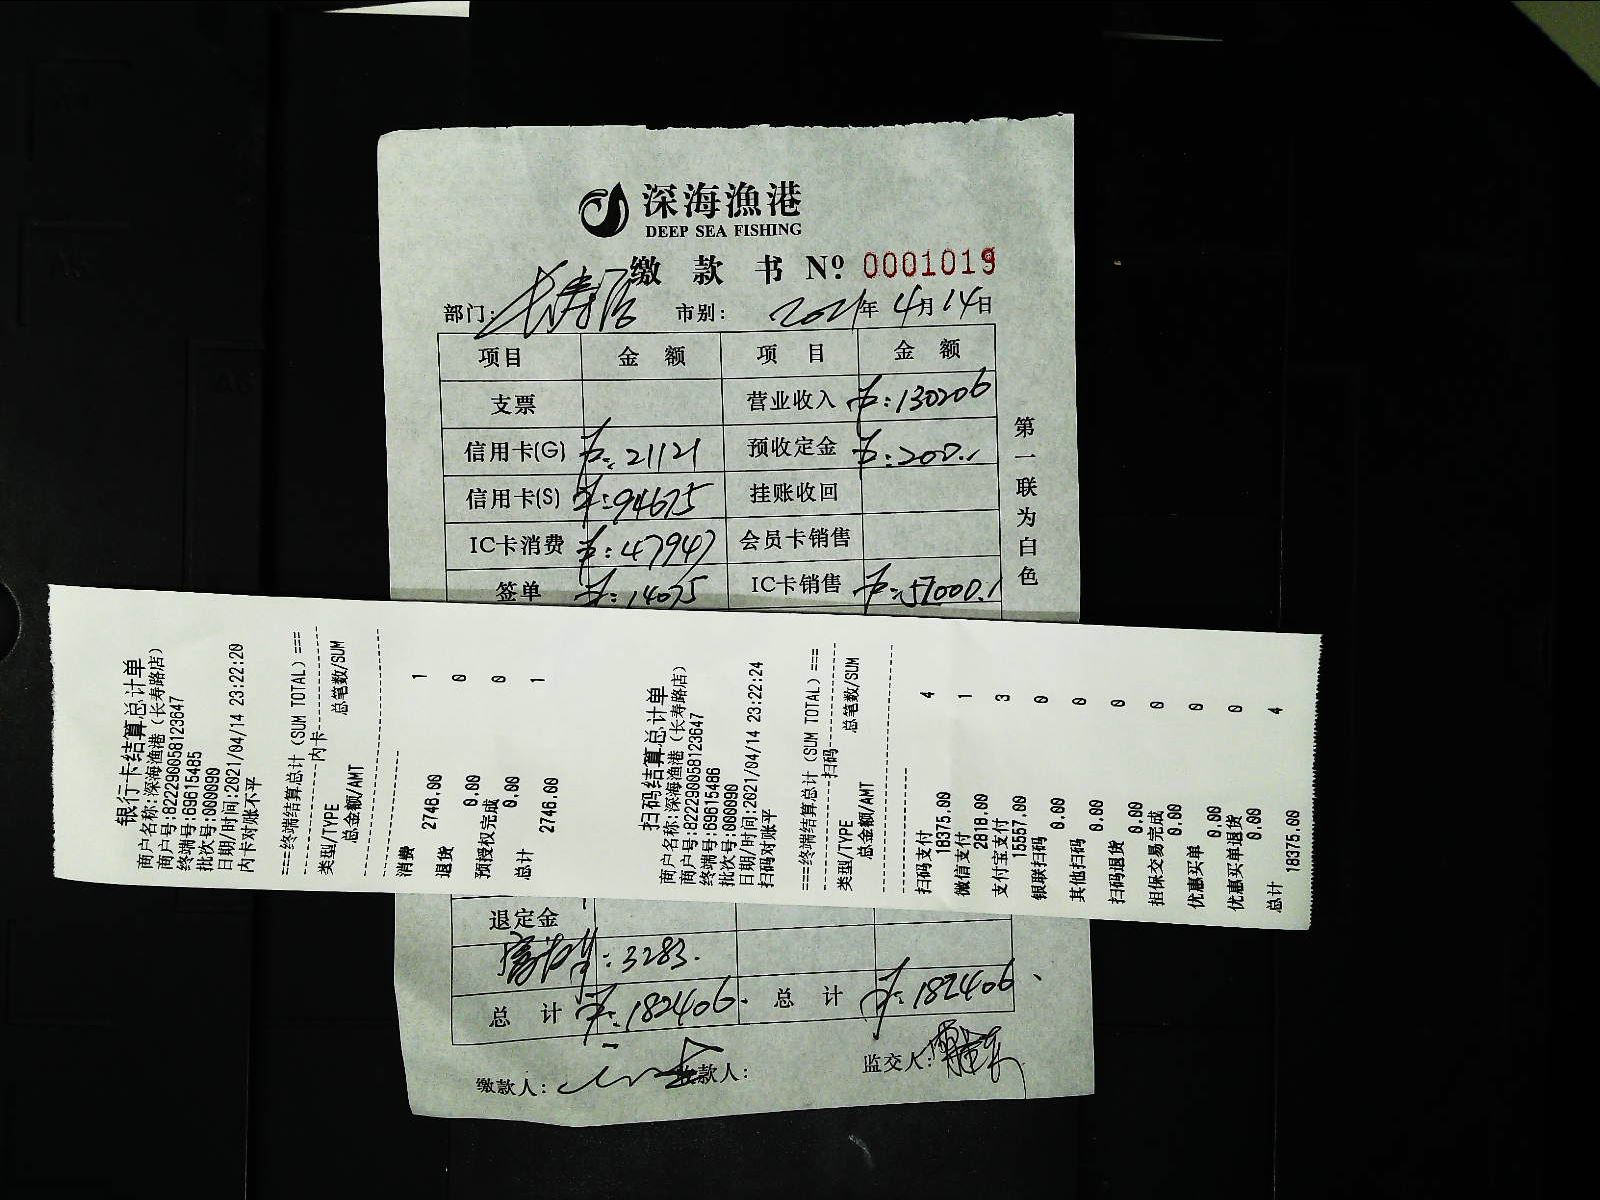 深海漁港
DEEP SEA FISHING
缴 款 书 Nº 0001019
部门: 长寿店 市别: 2021年4月14日
项目 金 额 项 目 金 额
支票 营业收入 ¥:130206
信用卡(G) ¥:21121 预收定金 ¥:200.
信用卡(S) ¥:94675 挂账收回
IC卡消费 ¥:47947 会员卡销售
签单 ¥:14075 IC卡销售 ¥:52000.
第一联为白色
银行卡结算总计单
商户名称:深海渔港（长寿路店）
商户号:822290058123647
终端号:69615485
批次号:000090
日期/时间:2021/04/14 23:22:20
内卡对账不平
===终端结算总计 (SUM TOTAL) ===
内卡
类型/TYPE 总笔数/SUM
总金额/AMT
消费 1
2746.00
退货 0
0.00
预授权完成 0
0.00
总计 1
2746.00
扫码结算总计单
商户名称:深海渔港（长寿路店）
商户号:822290058123647
终端号:69615486
批次号:000090
日期/时间:2021/04/14 23:22:24
扫码对账平
===终端结算总计 (SUM TOTAL) ===
扫码
类型/TYPE 总笔数/SUM
总金额/AMT
扫码支付 4
18375.00
微信支付 1
2818.00
支付宝支付 3
15557.00
银联扫码 0
0.00
其他扫码 0
0.00
扫码退货 0
0.00
担保交易完成 0
0.00
优惠买单 0
0.00
优惠买单退货 0
0.00
总计 4
18375.00
退定金
:3283.
总 计 ¥:182406. 总 计 ¥:182406
缴款人: 收款人: 监交人: